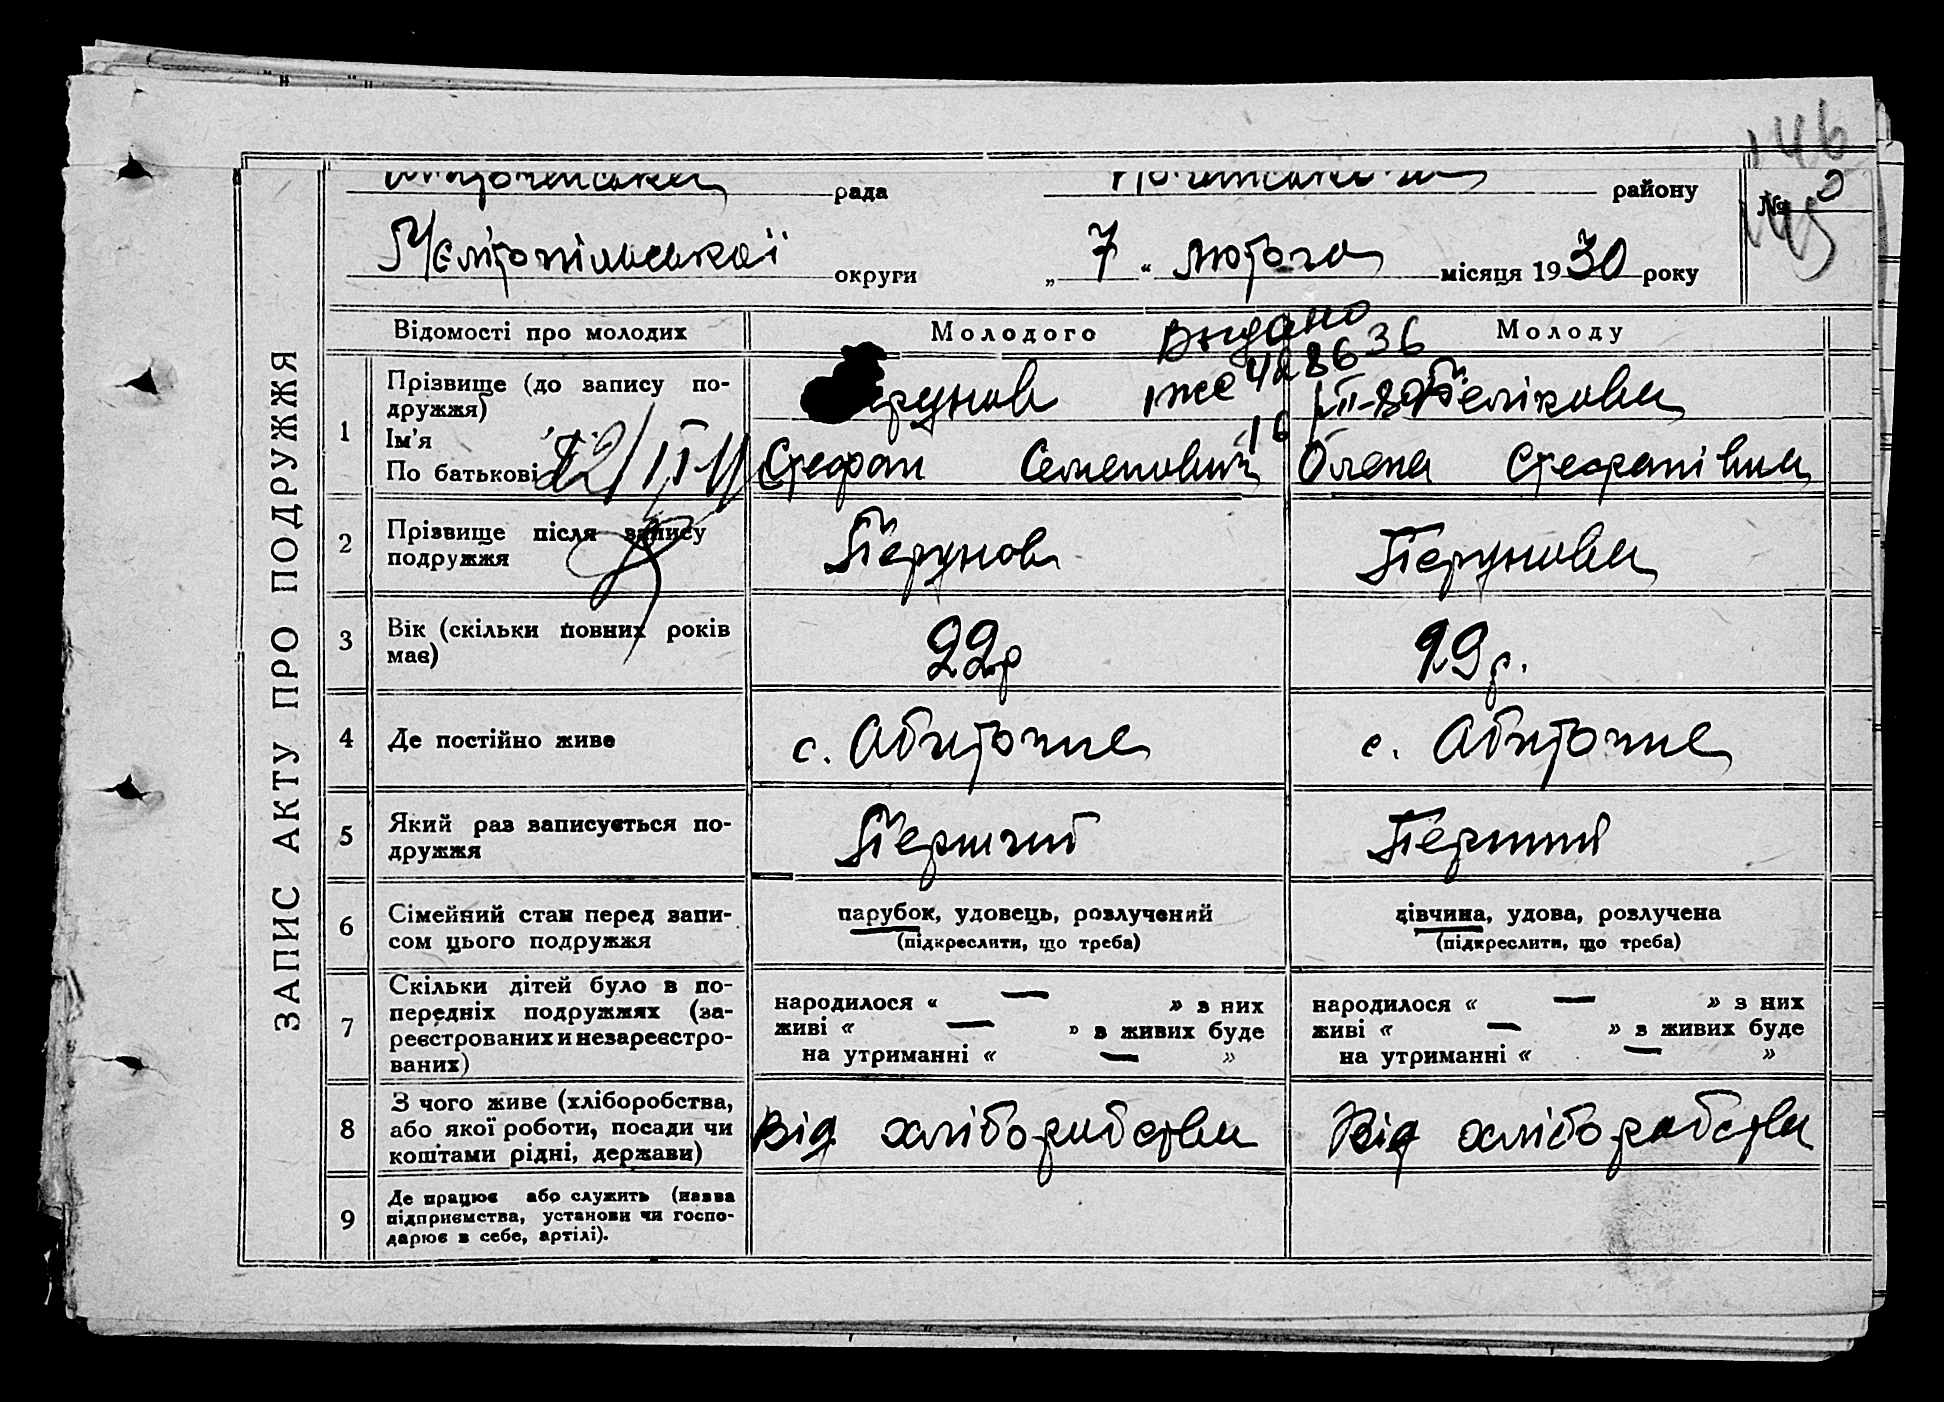 146
рада району №
Мелітопільської округи „ 7 “ лютого місяця 19 30 року
145
ЗАПИС АКТУ ПРО ПОДРУЖЖЯ
Відомості про молодих Молодого Молоду
Выдано
1 Прізвище (до запису по-
дружжя)
Ім'я
По батькові
Перунов Бєлікова
Стефан Семенович Олена Стефанівна
2 Прізвище після запису
подружжя
Перунов Перунова
3 Вік (скільки повних років
має)
22 р 19 р.
4 Де постійно живе с. Обиточне с. Обиточне
5 Який раз записується по-
дружжя
Перший Перший
6 Сімейний стан перед запи-
сом цього подружжя
парубок, удовець, розлучений дівчина, удова, розлучена
(підкреслити, що треба) (підкреслити, що треба)
7 Скільки дітей було в по-
передніх подружжях (за-
реєстрованих и незареєстро-
ваних)
народилося « — » з них народилося « — » з них
живі « — » в живих буде живі « — » в живих буде
на утриманні « — » на утриманні « — »
8 З чого живе (хліборобства,
або якої роботи, посади чи
коштами рідні, держави)
Від хліборобства Від хліборобства
9 Де працює або служить (назва
підприємства, установи чи госпо-
дарює в себе, артілі).